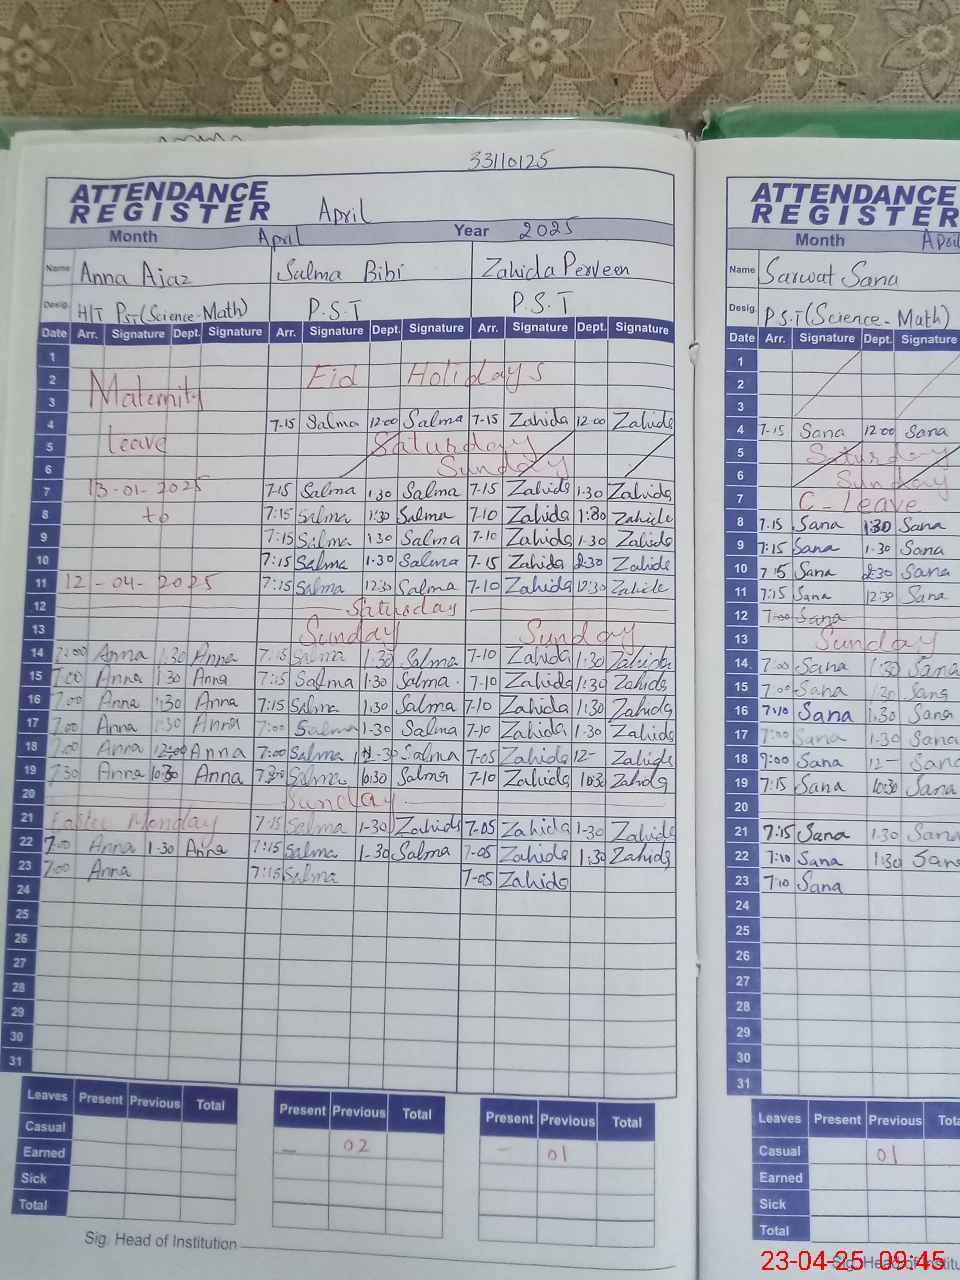 33110125
ATTENDANCE
REGISTER April
Month April Year 2025
Name Anna Ajaz Salma Bibi Zahida Perveen
Desig. H/T PST (Science-Math) P.S.T P.S.T
Date Arr. Signature Dept. Signature Arr. Signature Dept. Signature Arr. Signature Dept. Signature
1
2 Maternity Eid Holidays
3
4 7-15 Salma 12:00 Salma 7-15 Zahida 12:00 Zahida
5 Leave Saturday
6 Sunday
7 13-01-2025 7-15 Salma 1.30 Salma 7-15 Zahida 1.30 Zahida
8 to 7:15 Salma 1:30 Salma 7-10 Zahida 1:30 Zahida
9 7:15 Salma 1:30 Salma 7-10 Zahida 1.30 Zahida
10 7:15 Salma 1.30 Salma 7-15 Zahida 2:30 Zahida
11 12-04-2025 7:15 Salma 12:30 Salma 7-10 Zahida 12:30 Zahida
12 Saturday
13 Sunday Sunday
14 7:00 Anna 1:30 Anna 7:15 Salma 1:30 Salma 7-10 Zahida 1:30 Zahida
15 7:00 Anna 1:30 Anna 7:15 Salma 1:30 Salma 7-10 Zahida 1:30 Zahida
16 7:00 Anna 1:30 Anna 7:15 Salma 1.30 Salma 7-10 Zahida 1:30 Zahida
17 7:00 Anna 1:30 Anna 7:00 Salma 1-30 Salma 7-10 Zahida 1-30 Zahida
18 7:00 Anna 12:00 Anna 7:00 Salma Salma 7-05 Zahida 12- Zahida
19 7:30 Anna 10:30 Anna Salma 10:30 Salma 7-10 Zahida 10:30 Zahida
20 Sunday
21 Easter Monday 7:15 Salma 1-30 Zahida 7-05 Zahida 1-30 Zahida
22 7:00 Anna 1-30 Anna 7:15 Salma 1-30 Salma 7-05 Zahida 1:30 Zahida
23 7:00 Anna 7:15 Salma 7-05 Zahida
24
25
26
27
28
29
30
31
Leaves Present Previous Total Present Previous Total Present Previous Total
Casual - 02 - 01
Earned
Sick
Total
Sig. Head of Institution
ATTENDANCE
REGISTER
Month April
Name Sarwat Sana
Desig. P.S.T (Science-Math)
Date Arr. Signature Dept. Signature
1
2
3
4 7-15 Sana 12:00 Sana
5 Saturday
6 Sunday
7 C-Leave
8 7.15 Sana 1:30 Sana
9 7:15 Sana 1.30 Sana
10 7:15 Sana 2:30 Sana
11 7:15 Sana 12:30 Sana
12 7:00 Sana
13 Sunday
14 7:00 Sana 1:30 Sana
15 7:00 Sana 1:30 Sana
16 7:10 Sana 1.30 Sana
17 7:00 Sana 1.30 Sana
18 7:00 Sana 12- Sana
19 7:15 Sana 10:30 Sana
20
21 7:15 Sana 1.30 Sana
22 7:10 Sana 1:30 Sana
23 7:10 Sana
24
25
26
27
28
29
30
31
Leaves Present Previous
Casual 01
Earned
Sick
Total
Sig. Head of
23-04-25 09:45